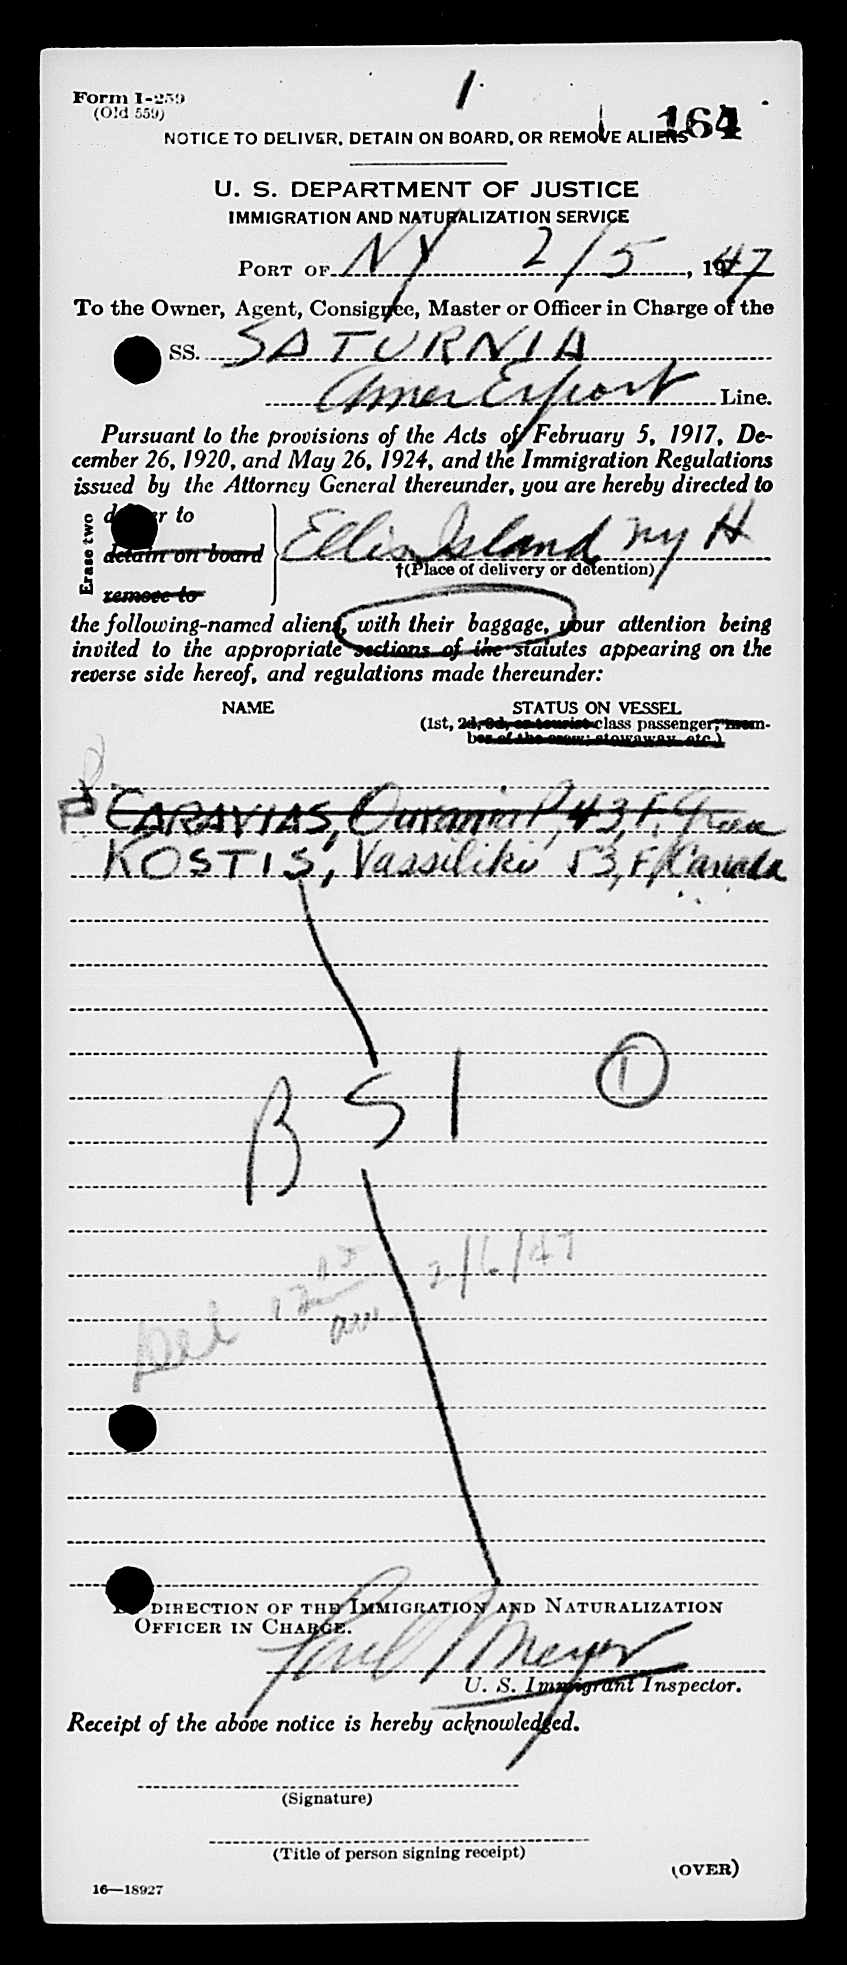 Form I-259
(Old 559)
1
164
NOTICE TO DELIVER, DETAIN ON BOARD, OR REMOVE ALIENS
U. S. DEPARTMENT OF JUSTICE
IMMIGRATION AND NATURALIZATION SERVICE
PORT OF NY 2/5, 1947
To the Owner, Agent, Consignee, Master or Officer in Charge of the
SS. SATURNIA
Amer Export Line.
Pursuant to the provisions of the Acts of February 5, 1917, De-
cember 26, 1920, and May 26, 1924, and the Immigration Regulations
issued by the Attorney General thereunder, you are hereby directed to
Erase two
deliver to
detain on board
remove to
Ellis Island NY H
†(Place of delivery or detention)
the following-named aliens, with their baggage, your attention being
invited to the appropriate sections of the statutes appearing on the
reverse side hereof, and regulations made thereunder:
NAME STATUS ON VESSEL
(1st, 2d, 3d, or tourist class passenger; mem-
ber of the crew; stowaway, etc.)
CARAVIAS, Ourania P, 43, F, Greece
KOSTIS, Vassiliki 53, F, Canada
B S I
1
Del 12 15 am 2/6/47
BY DIRECTION OF THE IMMIGRATION AND NATURALIZATION
OFFICER IN CHARGE.
Meyer
U. S. Immigrant Inspector.
Receipt of the above notice is hereby acknowledged.
(Signature)
(Title of person signing receipt)
(OVER)
16—18927